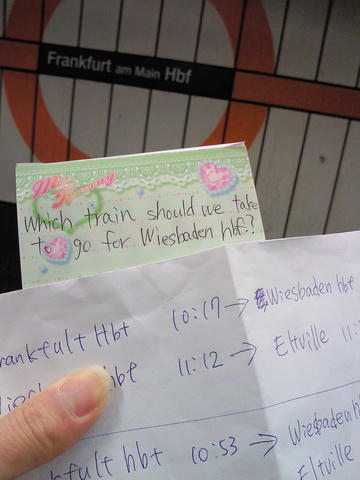 Frankfurt am Main Hbf
Which train should we take
to go for Wiesbaden hbf??
rankfult Hbt 10:17 → Wiesbaden hbf
hbf 11:12 → Eltville 11:
kfult hbt 10:53 → Wiesbaden h
Eltville